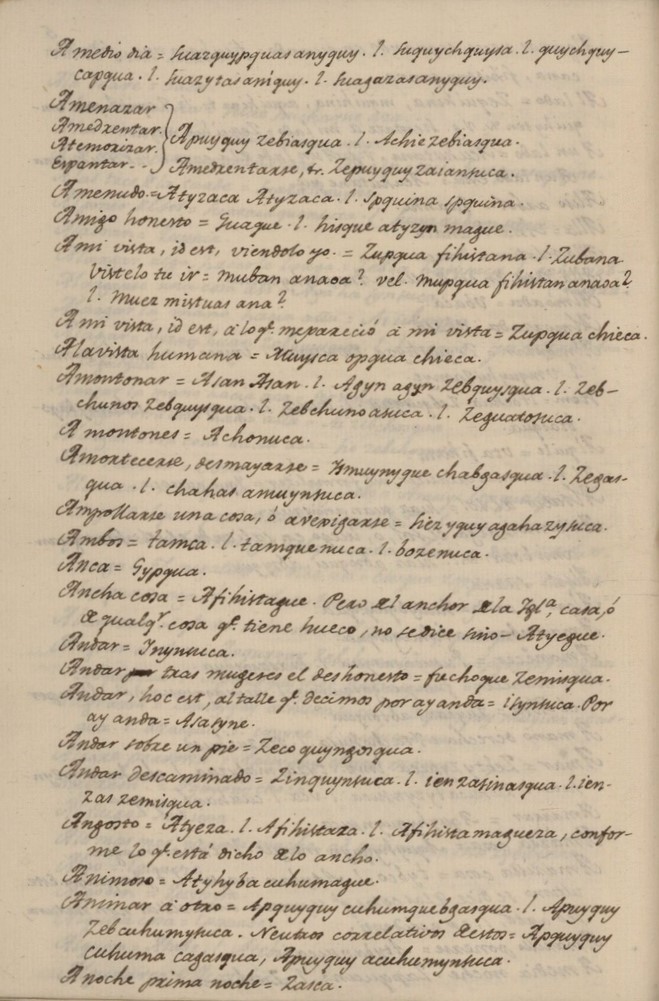 A medio dia = suazquypquas anyquy. l. suquychquysa. l. quychquy-
capqua. l. suazytas aníquy. l. suagazas anyquy.
Amenazar
Amedrentar
Atemorizar } Apuyquy zebiasqua. l. Achie zebiasqua.
Espantar - - Amedrentarse, tr. Zepuyquy zaiansuca.
Amenudo = Atyzaca Atyzaca. l. spquina spquina.
Amigo honesto = Guaque. l. hisque atyzyn mague.
A mi vista, id est, viendolo yo. = Zupqua fihistana. l. Zubana
Vistelo tu ir = muban anaoa? vel. mupqua fihistan anaoa?
l. muez mistuas ana?
A mi vista, id est, a lo q.e me pareció á mi vista = Zupqua chieca.
A la vista humana = Muysca opqua chieca.
Amontonar = Asan Asan. l. Agyn agyn zebquysqua. l. zeb-
chunos zebquysqua. l. zebchuno asuca. l. zeguatosuca.
A montones = Achonuca.
Amortecerse, desmayarse = ysmuynyque chabgasqua. l. zegas-
qua. l. chahas amuynsuca.
Ampollarse una cosa, ó avexigarse = hiezyquy agahazysuca.
Ambos = tamca. l. tamquenuca. l. bozenuca.
Anca = Gypqua.
Ancha cosa = Afihistague. Pero del anchor de la Igl.a, casa, ó
de qualq.r cosa q.e tiene hueco, no se dice sino - Atyegue.
Andar = Inynsuca.
Andar tras mugeres el deshonesto = fuchoque zemisqua.
Andar, hoc est, al talle q.e decimos por ay anda = isynsuca. Por
ay anda = Asasyne.
Andar sobre un pie = Zeco quyngosqua.
Andar descaminado = Zinquynsuca. l. ienzasinasqua. l. ien-
zas zemisqua.
Angosto = Atyeza. l. Afihistaza. l. Afihistamagueza, confor-
me lo q.e está dicho de lo ancho.
Animoso = Atyhyba cuhumague.
Animar á otro = Apquyquy cuhumque bgasqua. l. Apuyquy
zebcuhumysuca. Neutros correlativos de estos = Apquyquy
cuhuma cagasqua, Apuyquy acuhumynsuca.
Anoche prima noche = Zasca.